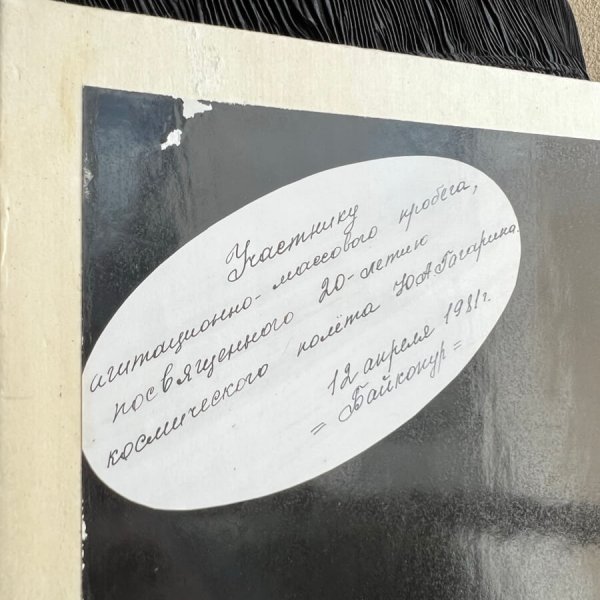 Участнику
агитационно-массового пробега,
посвященного 20-летию
космического полёта Ю.А.Гагарина.
12 апреля 1981г.
= Байконур =